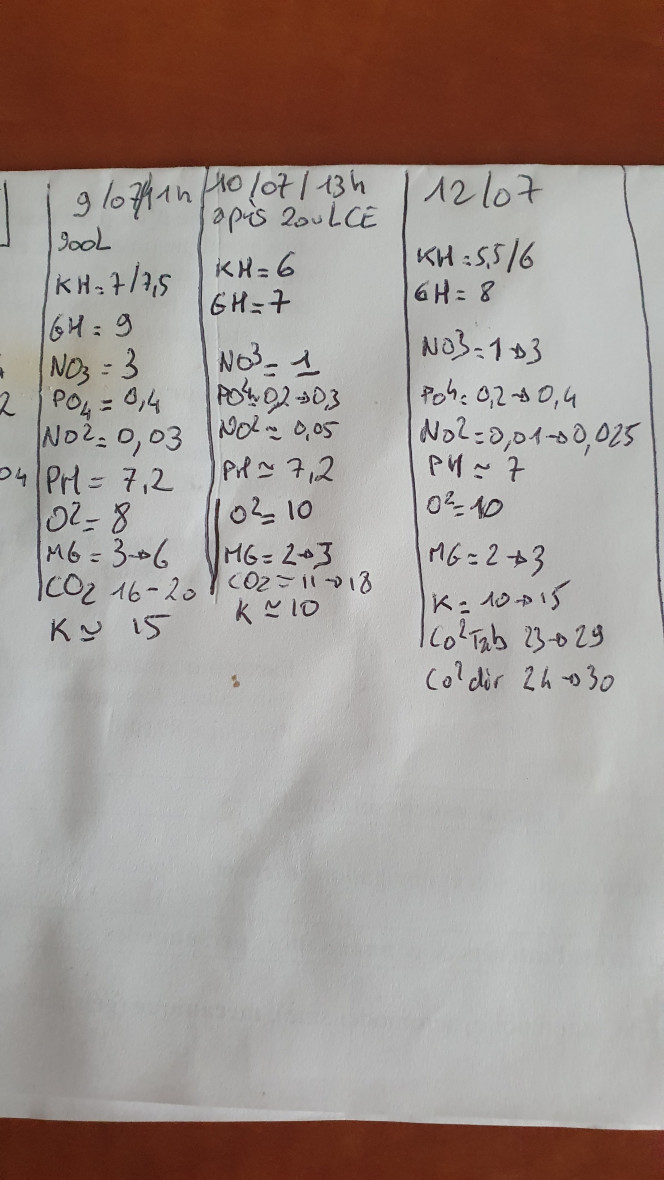 2
04
9/07/11h
900L
KH=7/7,5
GH=9
NO3=3
PO4=0,4
NO2=0,03
PH=7,2
O2=8
MG=3→6
CO2 16-20
K≃15
10/07/13h
après 200LCE
KH=6
GH=7
NO3=1
PO4=0,2→0,3
NO2=0,05
PH≃7,2
O2=10
MG=2→3
CO2=11→18
K≃10
12/07
KH=5,5/6
GH=8
NO3=1→3
PO4=0,2→0,4
NO2=0,01→0,025
PH≃7
O2=10
MG=2→3
K=10→15
Co2Tab 23→29
Co2dir 24→30